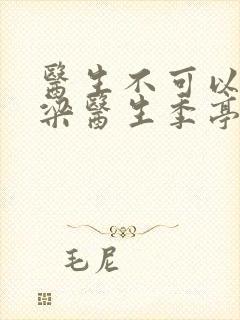 醫生不可以
梁醫生季亭
毛尼